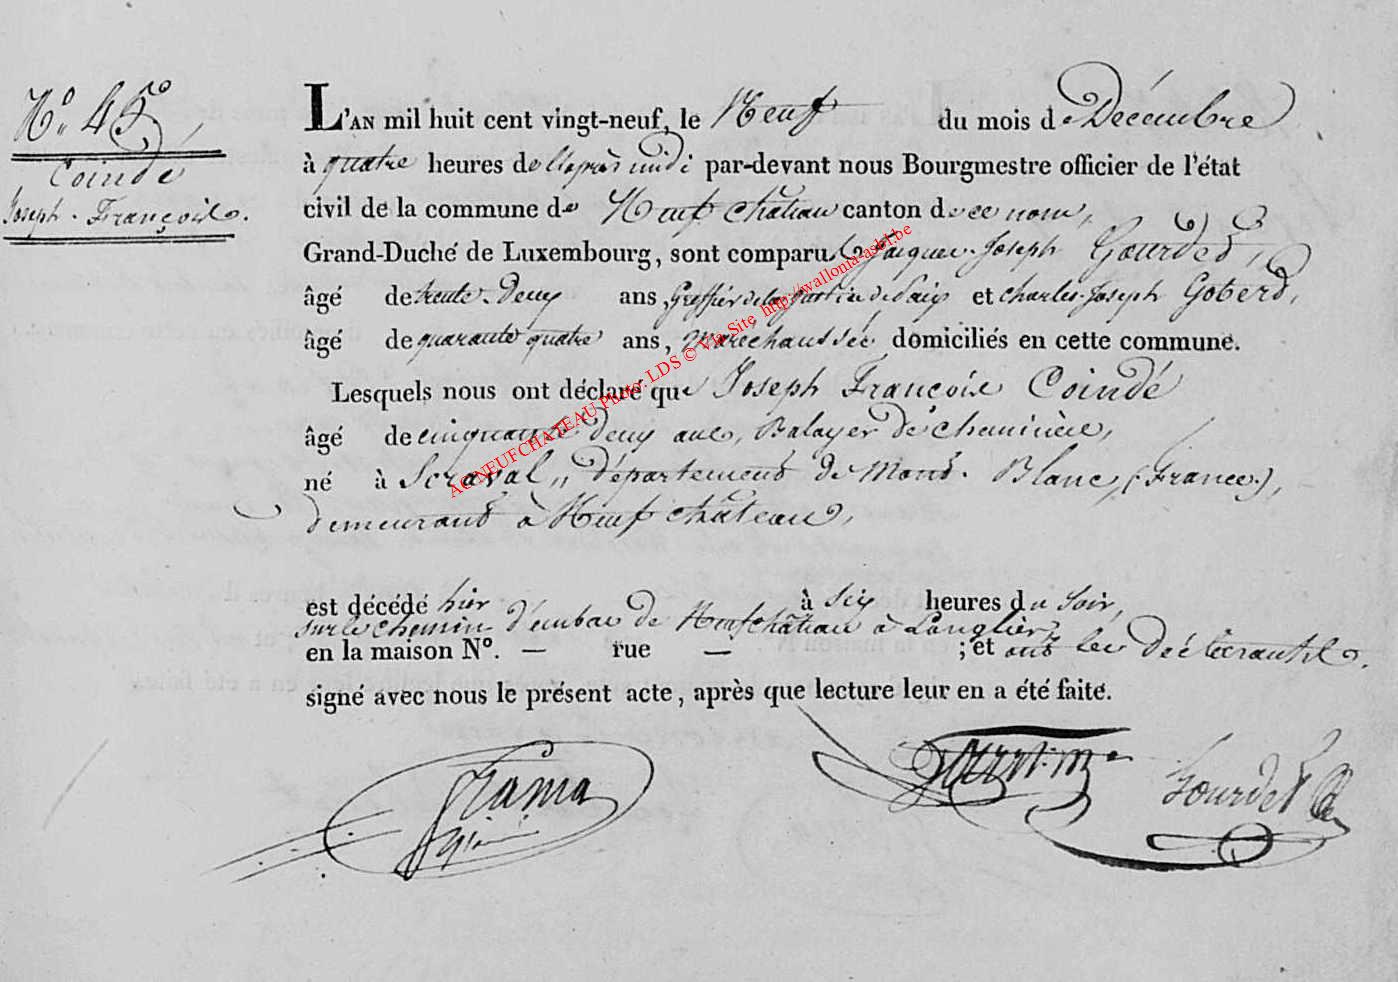 N° 45
Coindé
Joseph-François.
L'AN mil huit cent vingt-neuf, le Neuf du mois de Décembre
à quatre heures de l'après midi par-devant nous Bourgmestre officier de l'état
civil de la commune de Neufchâteau canton de ce nom,
Grand-Duché de Luxembourg, sont comparus Jacques-Joseph Gourdet,
âgé de trente-deux ans, Greffier de la justice de Paix et Charles-Joseph Goberd,
âgé de quarante quatre ans, Maréchaussée domiciliés en cette commune.
Lesquels nous ont déclaré que Joseph François Coindé
âgé de cinquante deux ans, Balayer de cheminées,
né à Scraval,, département de Mont-Blanc, (France),
demeurant à Neufchâteau,
est décédé hier à six heures du soir,
sur le chemin d'embas de Neufchâteau à Longlier,
en la maison N°. — rue — ; et ont les déclarants.
signé avec nous le présent acte, après que lecture leur en a été faite.
Gourdet
AC NEUFCHATEAU Photo. LDS © Via Site http://wallonia-asbl.be